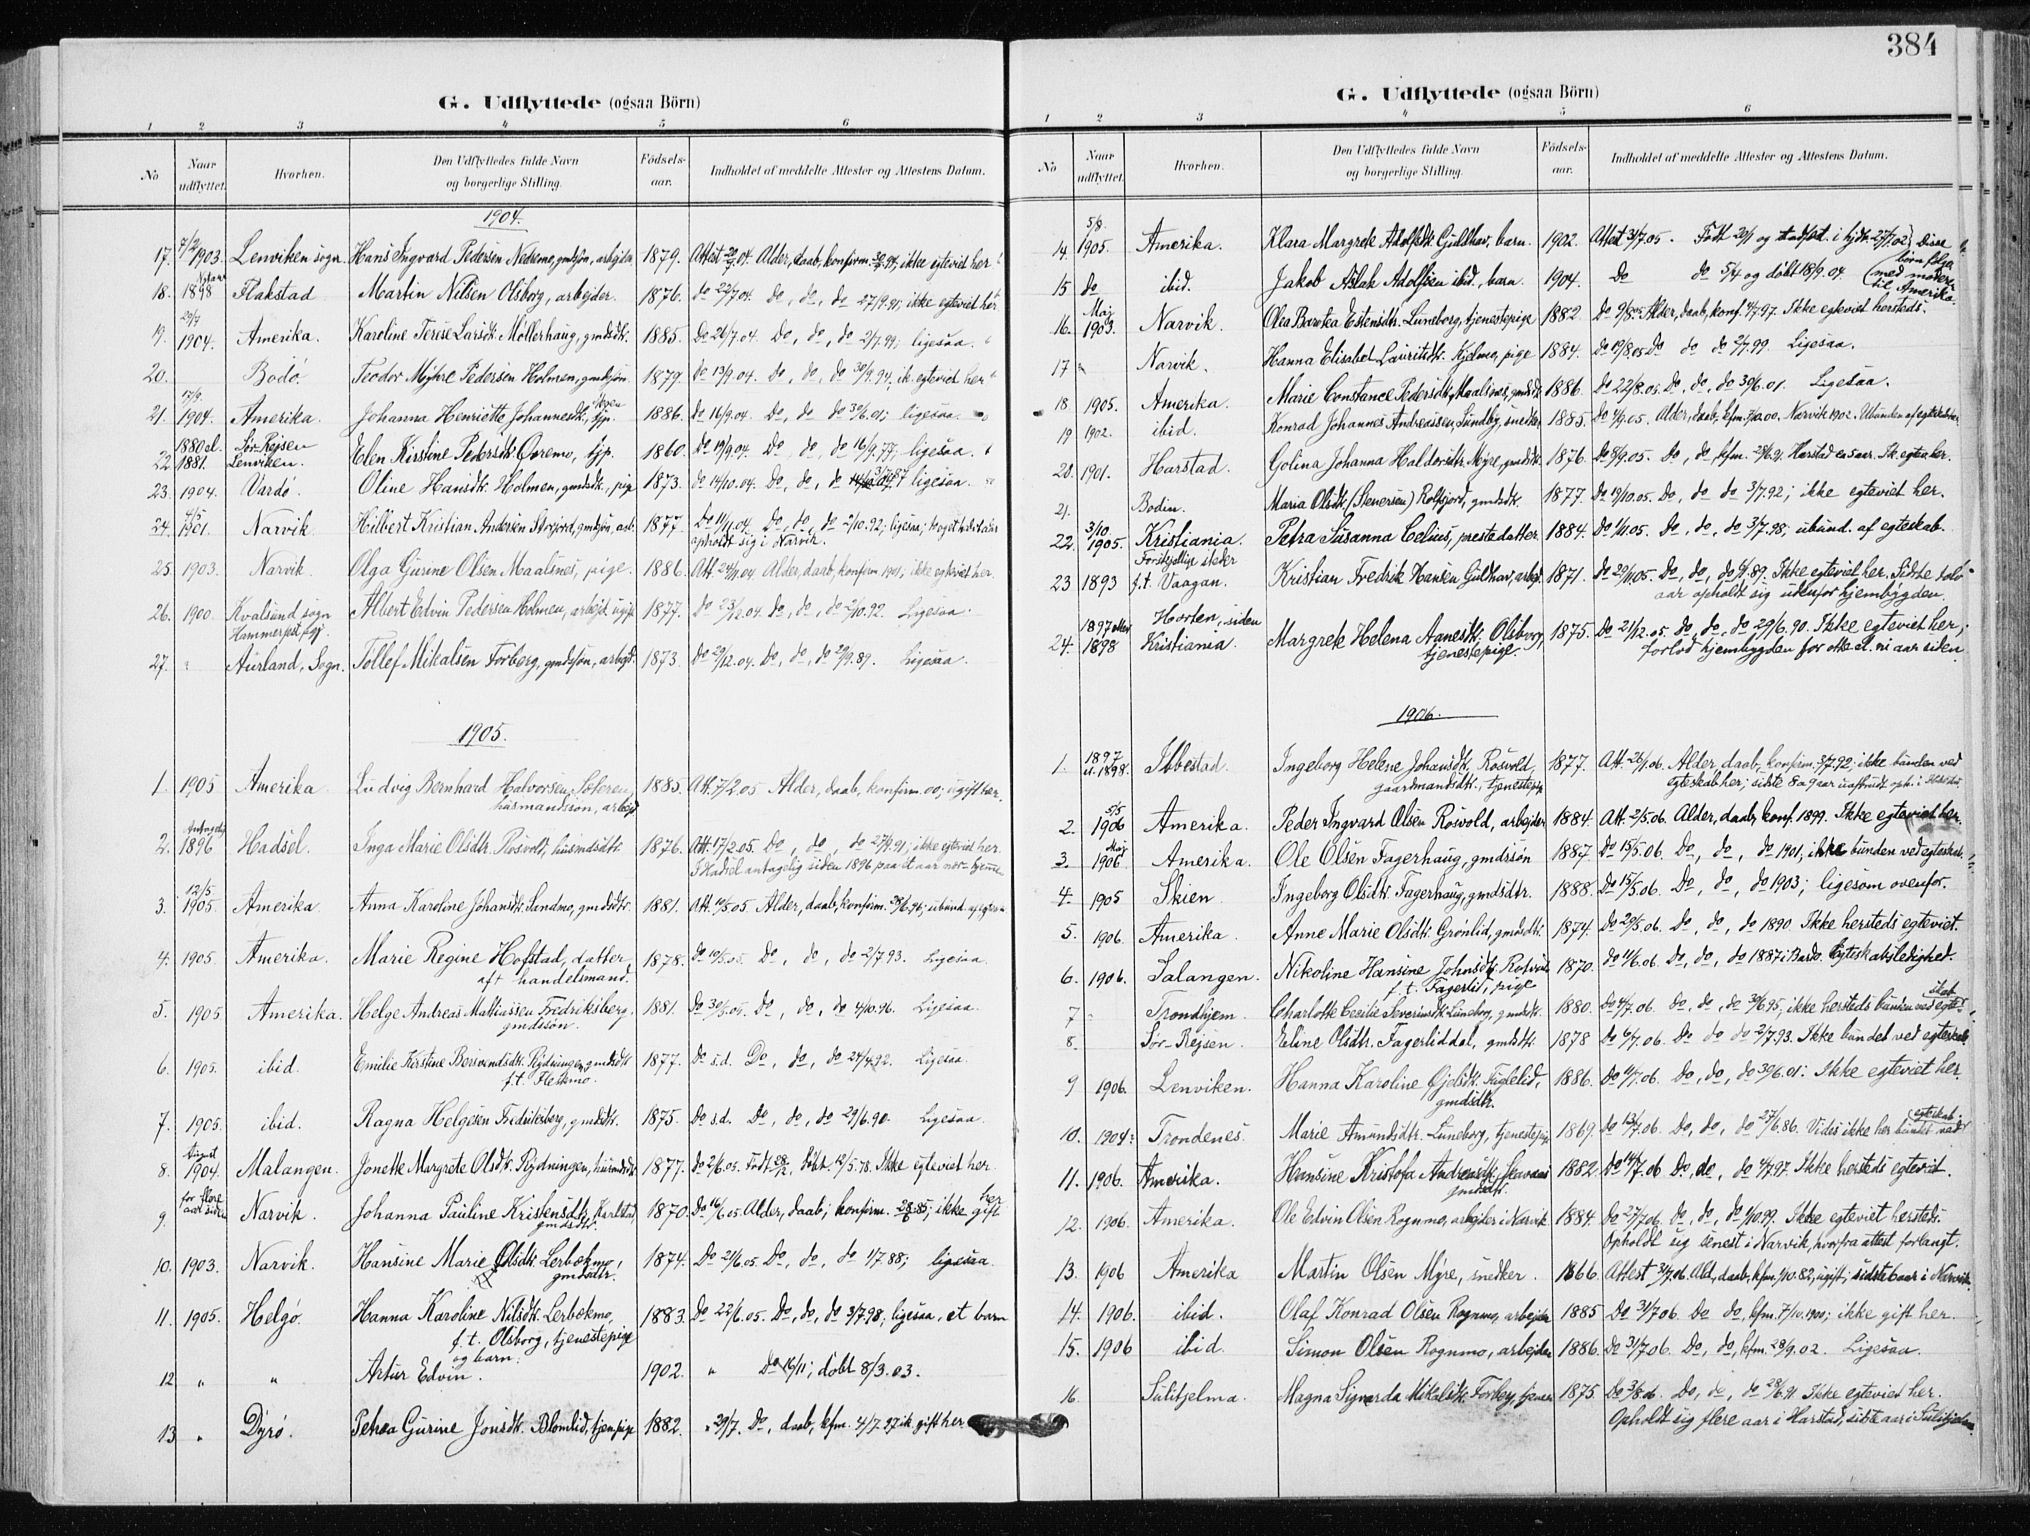 384
G. Udflyttede (ogsaa Börn)
1 2 3 4 5 6
No Naar udflyttet. Hvorhen. Den Udflyttedes fulde Navn og borgerlige Stilling. Fødsels-aar. Indholdet af meddelte Attester og Attestens Datum.
1904.
17. 7/12 1903. Lenviken sogn. Hans Ingvard Pedersen Nedremo, gmdsøn, arbejder 1879. Alder, daab, konfirm. ikke egteviet her
18. 1898 Flakstad Martin Nilsen Olsborg, arbejder. 1876. Do 22/7 04. Do, Do, do 27/9.91, ikke egteviet her
19. 1904. Amerika. Karoline Terese Larsdtr. Møllerhaug, gmdsdtr. 1885. Do 26/7.04. Do, do, do 2/7.99. ligesaa.
20. Bodø. Teodor Myhre Pedersen Holmen, gmdsøn. 1879. Do 13/9.04. Do, Do, do 30/9.94, ik. egteviet her
21. 1904. Amerika. Johanna Henriette Johannesdtr. Moen tjp. 1886. Do 16/9.04. Do, do do 30/6.01; ligesaa.
22. 1880 el. 1881. Sör-Rejsen Lenviken. Elen Kirstine Pedersdtr. Øvremo, tjp. 1860. Do 19/9.04 Do, do, do 16/9.77, ligesaa.
23. 1904. Vardö. Oline Hansdtr. Holmen, gmdsdtr., pige 1873. Do 14/10.04. Do, do, do ligesaa.
24. 1901. Narvik. Hilbert Kristian Andersen Storjord, gmdsøn, arb. 1877. Do 11/11.04. Do, do, do 2/10.92; ligesaa;
opholdt sig i Narvik.
25. 1903. Narvik. Olga Gurine Olsen Maalsnes, pige. 1886. Att. 24/11.04. Alder, daab, konfirm 1901, ikke egteviet her.
26. 1900. Kvalsund sogn Hammerfest pgj. Albert Edvin Pedersen Holmen, arbejd. ugift 1877. Do 23/12.04. Do, do, do 2/10.92. Ligesaa.
27. " Aurland, Sogn. Tollef Mikalsen Forberg, gmdsøn, arbejd. 1873. Do 29/12.04. Do, do, do 29/9.89. Ligesaa.
1905.
1. 1905 Amerika. Ludvig Bernhard Halvorsen, Sæteren, husmandssøn, arbejd. 1885. Att. 7/2.05 Alder, daab, konfirm. 00; ugift her.
2. Antagelig 1896 Hadsel. Inga Marie Olsdtr. Rosvold, husmdsdtr. 1876. Att. 17/2.05. Do, do, do 27/9.91; ikke egteviet her.
I Hadsel antagelig siden 1896 paa et aar nær hjemme
3. 12/5 1905. Amerika. Anna Karoline Johansdtr. Sandmo, gmdsdtr. 1881. Alder, daab, konfirm.
4. 1905. Amerika. Marie Regine Hofstad, datter aft handelsmand. 1878. Do 10/5.05. Do, do, do 2/7.93. Ligesaa.
5. 1905. Amerika. Helge Andreas Mattiassen Fredriksberg, gmdssøn. 1881. Do 30/5.05. Do, do, do 4/10.96. Ligesaa.
6. 1905. ibid. Emilie Kirstine Bersvendsdtr. Rydningen, gmdsdtr. f.t. Fleskmo. 1877. Do s.d. Do, do, do 24/4.92. Ligesaa.
7. 1905. ibid. Ragna Helgesen Fredriksberg, gmdsdtr. 1875. Do s.d. Do, do, do 29/6.90. Ligesaa.
8. 1904. Malangen. Jonette Margrete Olsdtr. Rydningen, husmdsdtr. 1877. Do 2/6.05. Født 28/2. Døbt 12/5.78. Ikke egteviet her.
9. for flere aar siden Narvik. Johanna Pauline Kristensdtr. Karlstad, gmdsdtr. 1870. Do 16/6.05 Alder, daab; konfirm. ikke gift her
10. 1903. Narvik. Hansine Marie Olsdtr. Lerbækmo, gmdsdtr. 1874. Do 21/6.05. Do, do, do 1/7 88; ligesaa
11. 1905. Helgø. Hanna Karoline Nilsdtr. Lerbækmo, f.t. Olsborg, tjenestepige og barn: 1883. Do 22/6.05. Do, do, do 3/7.98, ligesaa, et barn
12. " " Artur Edvin. 1902. " Do 16/11; døbt 8/3.03.
13. " Dyrø. Petrea Gurine Jonsdtr. Blomlid, tjen.pige 1882. " 29/7. Do, daab, kfm. 4/7.97 ik. gift her
G. Udflyttede (ogsaa Börn)
1 2 3 4 5 6
No Naar udflyttet. Hvorhen. Den Udflyttedes fulde Navn og borgerlige Stilling. Fødsels-aar. Indholdet af meddelte Attester og Attestens Datum.
14. 5/8. 1905. Amerika. Klara Margrete Adolfsdtr. Guldhav, barn. 1902. Attest 31/7.05. Født 20/1 og stadfæst. i hjdb. 27/7.02. Disse børn følge med moderen til Amerika.
15. do ibid. Jakob Aslak Adolfsen ibid., barn. 1904. Do do 5/4 og døbt 18/9.04.
16. Maj 1903. Narvik. Olea Barotea Estensdtr. Luneborg, tjenestepige 1882 Do 9/8.05 Alder, daab, konf. 4/7.97. Ikke egteviet hersteds.
17. " Narvik. Hanna Elisabet Lauritsdtr. Kjelmo, pige 1884. Do 19/8.05 Do do do 2/7.99. Ligesaa.
18. 1905. Amerika. Marie Constance Pedersdtr. Maalsnes, gmdsdtr. 1886. Do 22/8.05. Do, do, do 30/6.01. Ligesaa.
19. 1902. ibid. Konrad Johannes Andreassen, Lundby, snedker 1885. Alder, daab, kfm. Narvik 1902.
20. 1901. Harstad. Golina Johanna Haldorsdtr. Myre, gmdsdtr. 1876. Do 8/9.05. Do, do, kfm. Harstad
21. Bodin. Maria Olsdtr. (Senersen) Rolfsjord, gmdsdtr. 1877. Do 19/10.05. Do, do do 3/7.92; ikke egteviet her.
22. 3/10 1905. Kristiania. Petra Susanna Celius, prestedatter. 1884. Do 1/11.05. Do, do, do 3/7.98; ubund. af egteskab.
23. 1893 Forskjellige steder f.t. Vaagan. Kristian Fredrik Hansen Guldhav, arbejd. 1871. Do 22/11.05. Do, do, do Ikke egteviet her. Sidste tolv
aar opholdt sig udenfor hjembygden.
24. 1897 eller 1898 Horten, siden Kristiania. Margrete Helena Aanesdtr. Olsborg, tjenestepige. 1875. Do 21/12.05. Do, do, do 29/6.90. Ikke egteviet her;
forlod hjembygden for otte el. ni aar siden
1906.
1. 1897 el. 1898. Ibbestad. Ingeborg Helene Johansdtr. Rosvold, gaardmandsdtr., tjenestepige 1877. Att. 26/1.06. Alder, daab, konfirm. 3/7.92; ikke bunden ved
egteskab her; sidste 8 a 9 aar uafbrudt oph. i Ibbestad.
2. 5/5 1906 Amerika. Peder Ingvard Olsen Rosvold, arbejder 1884. Att. 2/5.06. Alder, daab, konf. 1899. Ikke egteviet her.
3. Maj 1906 Amerika. Ole Olsen Fagerhaug, gmdssøn 1887 Do 15/5.06. Do, do, do 1901; ikke bunden ved egteskab.
4. 1905 Skien. Ingeborg Olsdtr. Fagerhaug, gmdsdtr. 1888. Do 15/5.06. Do, do, do 1903; ligesom ovenfor.
5. 1906. Amerika. Anne Marie Olsdtr. Grønlid, gmdsdtr. 1874. Do 20/5.06. Do, do, do 1890. Ikke hersteds egteviet.
6. 1906. Salangen. Nikoline Hansine Johnsdtr. f.t. Fagerlid, pige 1870. Do 11/6.06. Do, do, do 1887 i Bardo. Egteskabsledighed.
7. " Trondhjem. Charlotte Cecilie Severinsdtr. Luneborg, gmdsdtr. 1880. Do 4/7.06. Do, do, do 30/6.95, ikke hersteds bunden ved egteskab
8. Sör-Rejsen. Eline Olsdtr. Fagerliddal, gmdsdtr. 1878 Do 6/7.06. Do do do 2/7.93. Ikke bundet ved egteskab.
9. 1906. Lenviken. Hanna Karoline Ojelsdtr. Fuglelid, gmdsdtr. 1886. Do 11/7.06. Do, do, do 30/6.01: Ikke egteviet her.
10. 1904: Trondenes. Marie Amundsdtr. Luneborg, tjenestepige 1869. Do 13/7.06. Do, do, do 27/6.86. Vides ikke her bundet ved egteskab.
11. 1906. Amerika. Hansine Kristofa Andreasdtr. gmdsdtr. 1882. Do 14/7.06 Do, do, do 4/7.97. Ikke hersteds egteviet.
12. 1906. Amerika. Ole Edvin Olsen Rognmo, arbejder i Narvik 1884. Do 27/7.06. do, do, do 1/10.99. Ikke egteviet hersteds.
Opholdt sig senest i Narvik, hvorfra attest forlangt.
13. 1906 Amerika Martin Olsen Myre, snedker. 1866. Attest 31/7.06. Ald., daab, kfm. 1/10.82, ugift; sidste 6 aar i Narvik.
14. 1906. ibid. Olaf Konrad Olsen Rognmo, arbejder 1885 Do 31/7.06. Do do, kfm. 7/10.1900; ikke gift her.
15. 1906 ibid. Simon Olsen Rognmo, arbejder 1886. Do 31/7.06. Do, do, kfm. 28/9.02. Ligesaa.
16. Sulitjelma. Magna Sigvarda Mikalsdtr. Forberg, tjener 1875. Do 3/8.06. Do, do, do 28/6.91. Ikke egteviet her.
Opholdt sig flere aar i Harstad, sidste aar i Sulitjelma.